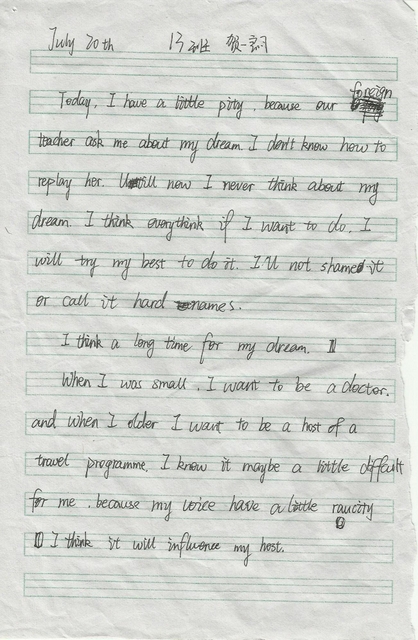 July 20th 13班
foreign
Today, I have a little pity, because our
teacher ask me about my dream. I don't know how to
replay her. Untill now I never think about my
dream. I think everythink if I want to do, I
will try my best to do it. I'll not shamed it
or call it hard names.
I think a long time for my dream.
When I was small, I want to be a doctor,
and when I older I want to be a host of a
travel programme, I know it maybe a little difficult
for me, because my voice have a little raucity
I think it will influence my host.